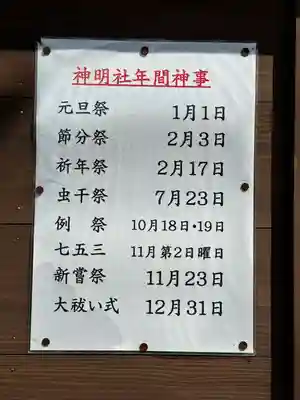 神明社年間神事
元旦祭 1月1日
節分祭 2月3日
祈年祭 2月17日
虫干祭 7月23日
例　祭 10月18日・19日
七五三 11月第2日曜日
新嘗祭 11月23日
大祓い式 12月31日